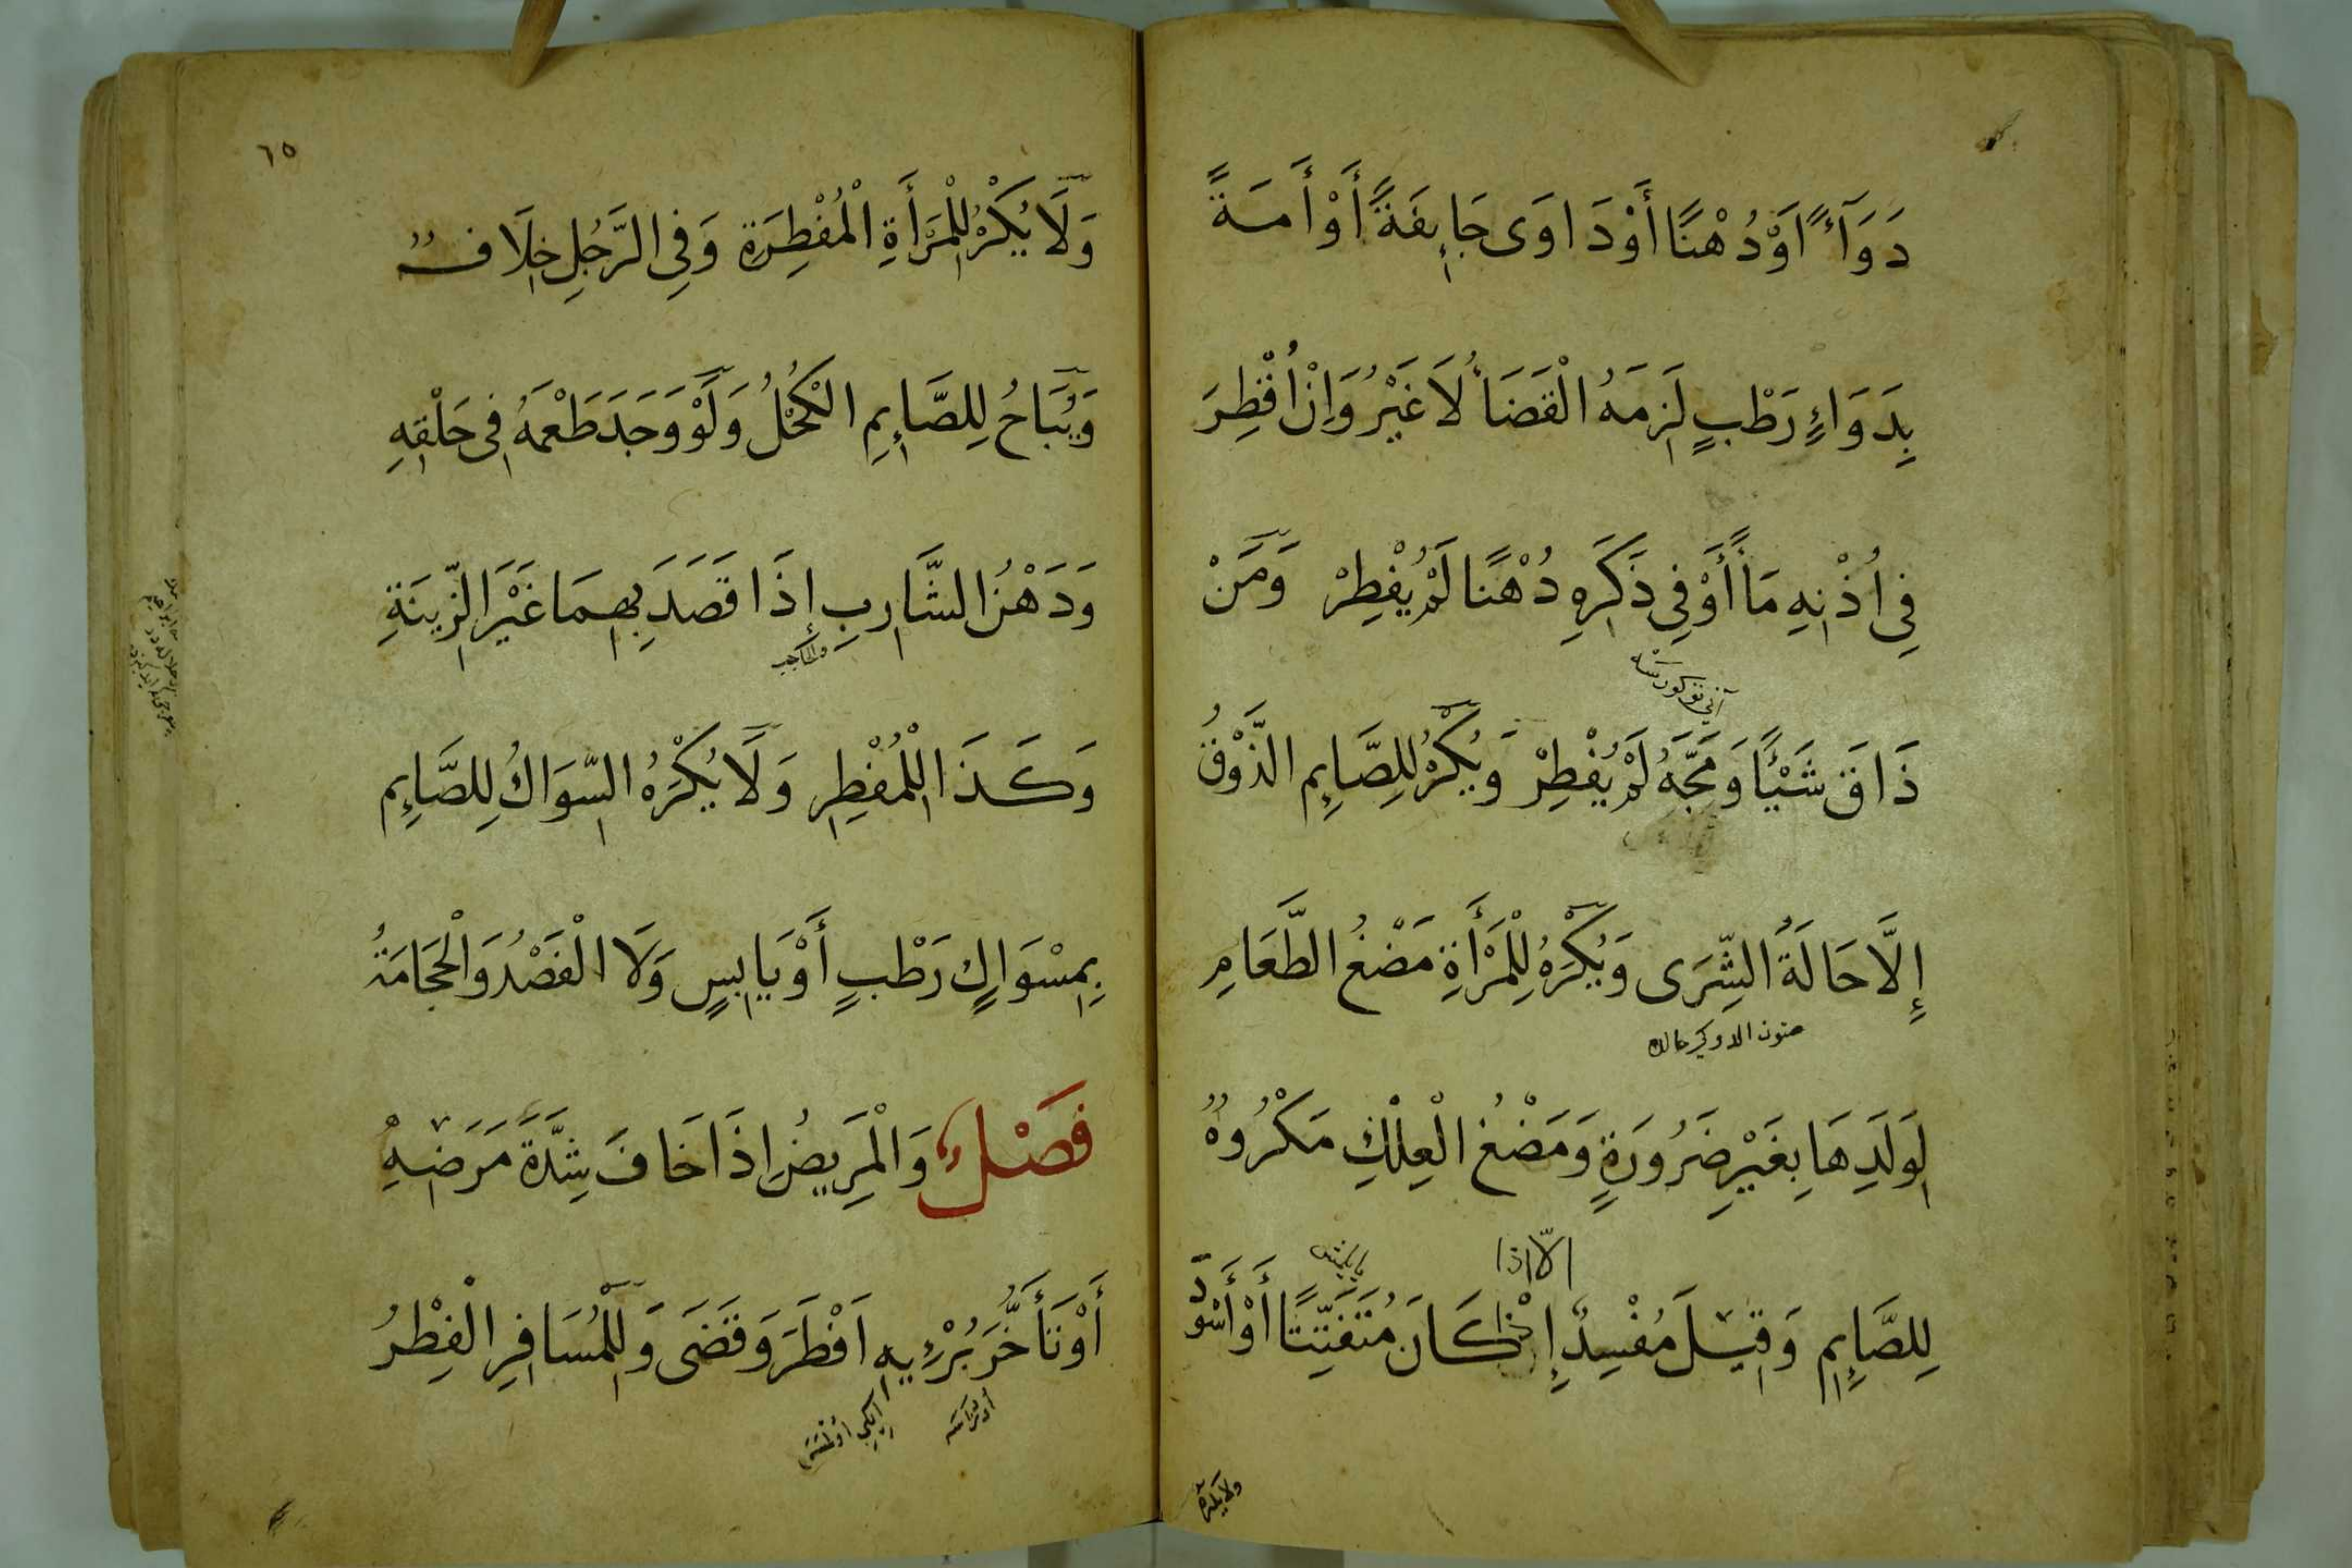 دَوَآءً اَوْ دُهْنًا أَوْ دَاوَى جَائِفَةً أَوْ أَمَةً
بِدَوَاءٍ رَطْبٍ لَزِمَهُ الْقَضَاءُ لَا غَيْرُ وَاِنْ اُقْطِرَ
فِى اُذْنِهِ مَاءً أَوْ فِى ذَكَرِهِ دُهْنًا لَمْ يُفْطِرْ وَمَنْ
ذَاقَ شَيْئًا وَمَجَّهُ لَمْ يُفْطِرْ وَيُكْرَهُ لِلصَّايِمِ الذَّوْقُ
إِلَّا حَالَةَ الشِّرَى وَيُكْرَهُ لِلْمَرْأَةِ مَضْغُ الطَّعَامِ
لِوَلَدِهَا بِغَيْرِ ضَرُورَةٍ وَمَضْغُ الْعِلْكِ مَكْرُوهٌ
الّا اذا
لِلصَّايِمِ وَقِيلَ مُفْسِدٌ إِنْ كَانَ مُتَفَتِّتًا أَوْ أَسْوَدَ
ولا يكره
٦٥
وَلَا يُكْرَهُ لِلْمَرْأَةِ الْمُفْطِرَةِ وَفِى الرَّجُلِ خِلَافٌ
وَيُبَاحُ لِلصَّائِمِ الْكُحْلُ وَلَوْ وَجَدَ طَعْمَهُ فِى حَلْقِهِ
وَدَهْنُ الشَّارِبِ إِذَا قَصَدَ بِهِمَا غَيْرَ الزِّينَةِ
والحاجب
وَكَذَا لِلْمُفْطِرِ وَلَا يُكْرَهُ السِّوَاكُ لِلصَّائِمِ
بِمِسْوَاكٍ رَطْبٍ أَوْ يَابِسٍ وَلَا الْفَصْدُ وَالْحَجَامَةُ
فَصْلٌ وَالْمَرِيضُ اِذَا خَافَ شِدَّةَ مَرَضِهِ
أَوْ تَأَخُّرَ بُرْءِيهِ اَفْطَرَ وَقَضَى وَلِلْمُسَافِرِ الْفِطْرُ